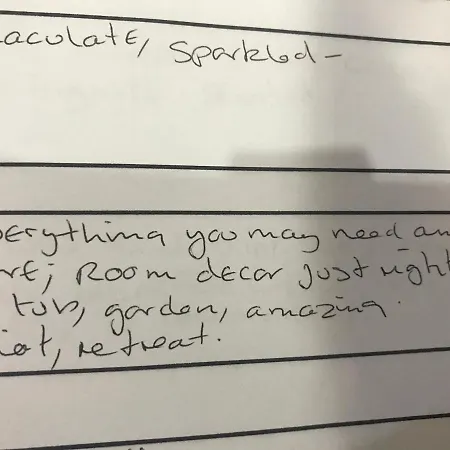 aculate, sparkled –
verything you may need an
ore; Room decor just right
tub, garden, amazing.
iet, retreat.